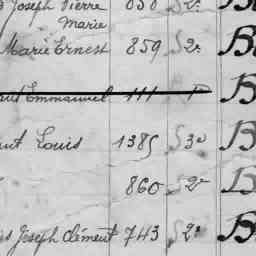 Joseph Pierre 858 S 2e B
Marie
Marie Ernest 859 S 2e B
Emmanuel 111 1e B
Louis 1385 S 3e B
860 S 2e B
Joseph Clément 743 S 2e B